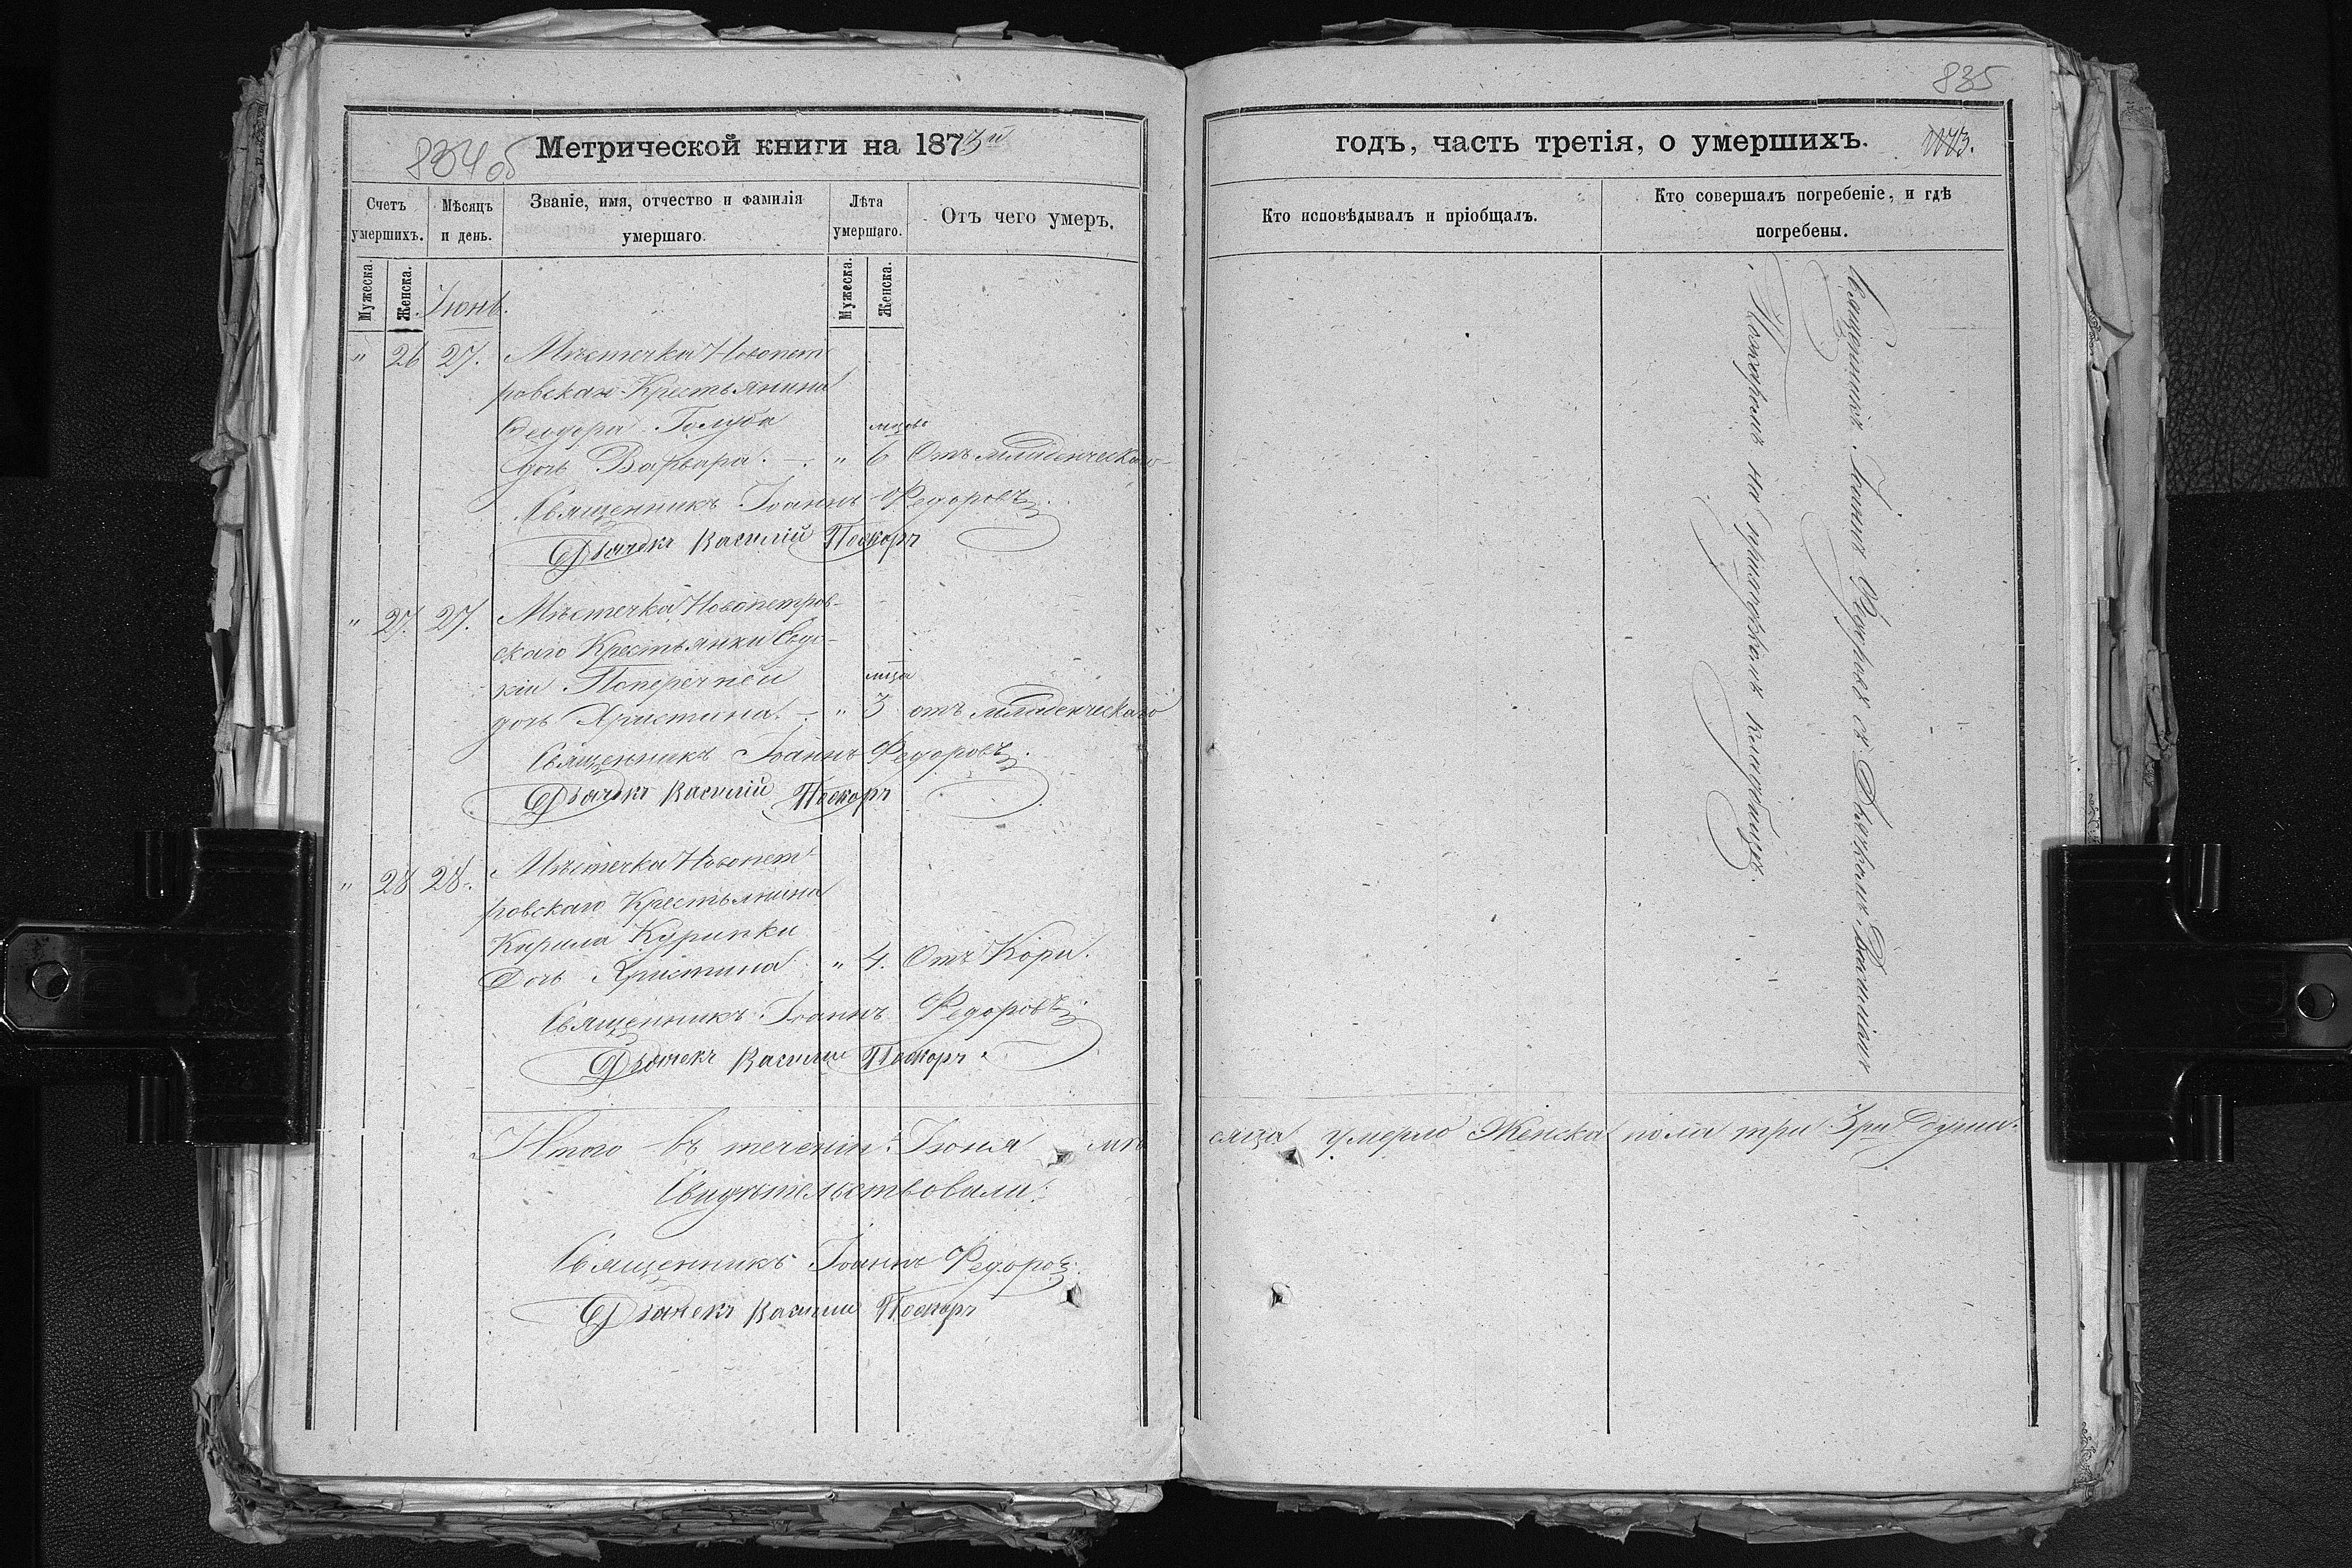 834 об
Метрической книги на 1873й
Счетъ умершихъ.
Мѣсяцъ и день.
Званіе, имя, отчество и фамилія умершаго.
Лѣта умершаго.
Отъ чего умеръ.
Мужеска.
Женска.
Мужеска.
Женска.
Іюнь.
" 26 27. Мѣстечка Новопет
ровскаго Крестьянина
Феодора Голуба
мѣсяц.
дочь Варвара. — " 6 Отъ младенческаго
Священникъ Іоаннъ Федоровъ
Дьячекъ Василій
" 27. 27. Мѣстечка Новопетров-
скаго Крестьянки Евдо-
кіи Поперечней
мѣсца
дочь Христина. — " 3 отъ младенческаго
Священникъ Іоаннъ Федоровъ.
Дьячекъ Василій
" 28 28. Мѣстечка Новопет
ровскаго Крестьянина
Кирила Курипки
Дочь Христина " 4. Отъ Кори.
Священникъ Іоаннъ Федоровъ
Дьячекъ Василій
Итого въ теченіи Іюня мѣ
Свидѣтельствовали:
Священникъ Іоаннъ Федоровъ
Дьячекъ Василій
835
годъ, часть третія, о умершихъ.
Кто исповѣдывалъ и пріобщалъ.
Кто совершалъ погребеніе, и гдѣ
погребены.
Священникъ Іоаннъ Федоровъ съ Дьячкомъ Василіемъ
на приходскомъ кладбищѣ.
сяца умерло Женска пола три 3ри души.